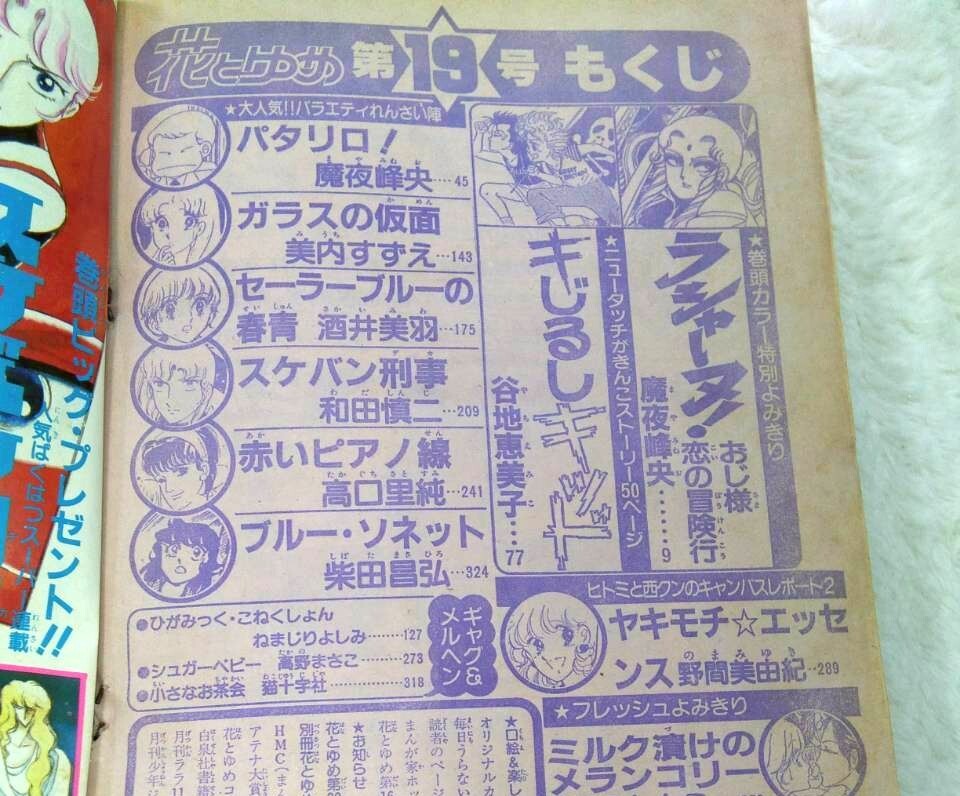 花とゆめ 第19号 もくじ
★大人気!!バラエティれんさい陣
パタリロ!
魔夜峰央…45
ガラスの仮面
美内すずえ…143
セーラーブルーの
春青 酒井美羽…175
スケバン刑事
和田慎二…209
赤いピアノ線
高口里純…241
ブルー・ソネット
柴田昌弘…324
★巻頭カラー特別よみきり
ラシャーヌ!
おじ様
恋の冒険行
魔夜峰央……9
★ニュータッチがきんこストーリー50ページ
キじるしキッド
谷地恵美子…77
ヒトミと西クンのキャンパスレポート2
ヤキモチ☆エッセ
ンス 野間美由紀…289
★フレッシュよみきり
ミルク漬けの
メランコリー
ギャグ&
メルヘン
●ひがみつく・こねくしょん
ねまじりよしみ………127
●シュガーベビー 高野まさこ………273
●小さなお茶会 猫十字社……………318
★口絵&楽し
オリジナルカ
毎日うらない
読者のページ
まんが家ホッ
花とゆめ第16
★お知らせ
花とゆめ第20
別冊花とゆめ
HMC(まん
アテナ大賞
花とゆめコ
白泉社書籍
月刊ララ11
月刊少年ジ
巻頭ビッグ・プレゼント!!
人気ばくはつスーパー連載